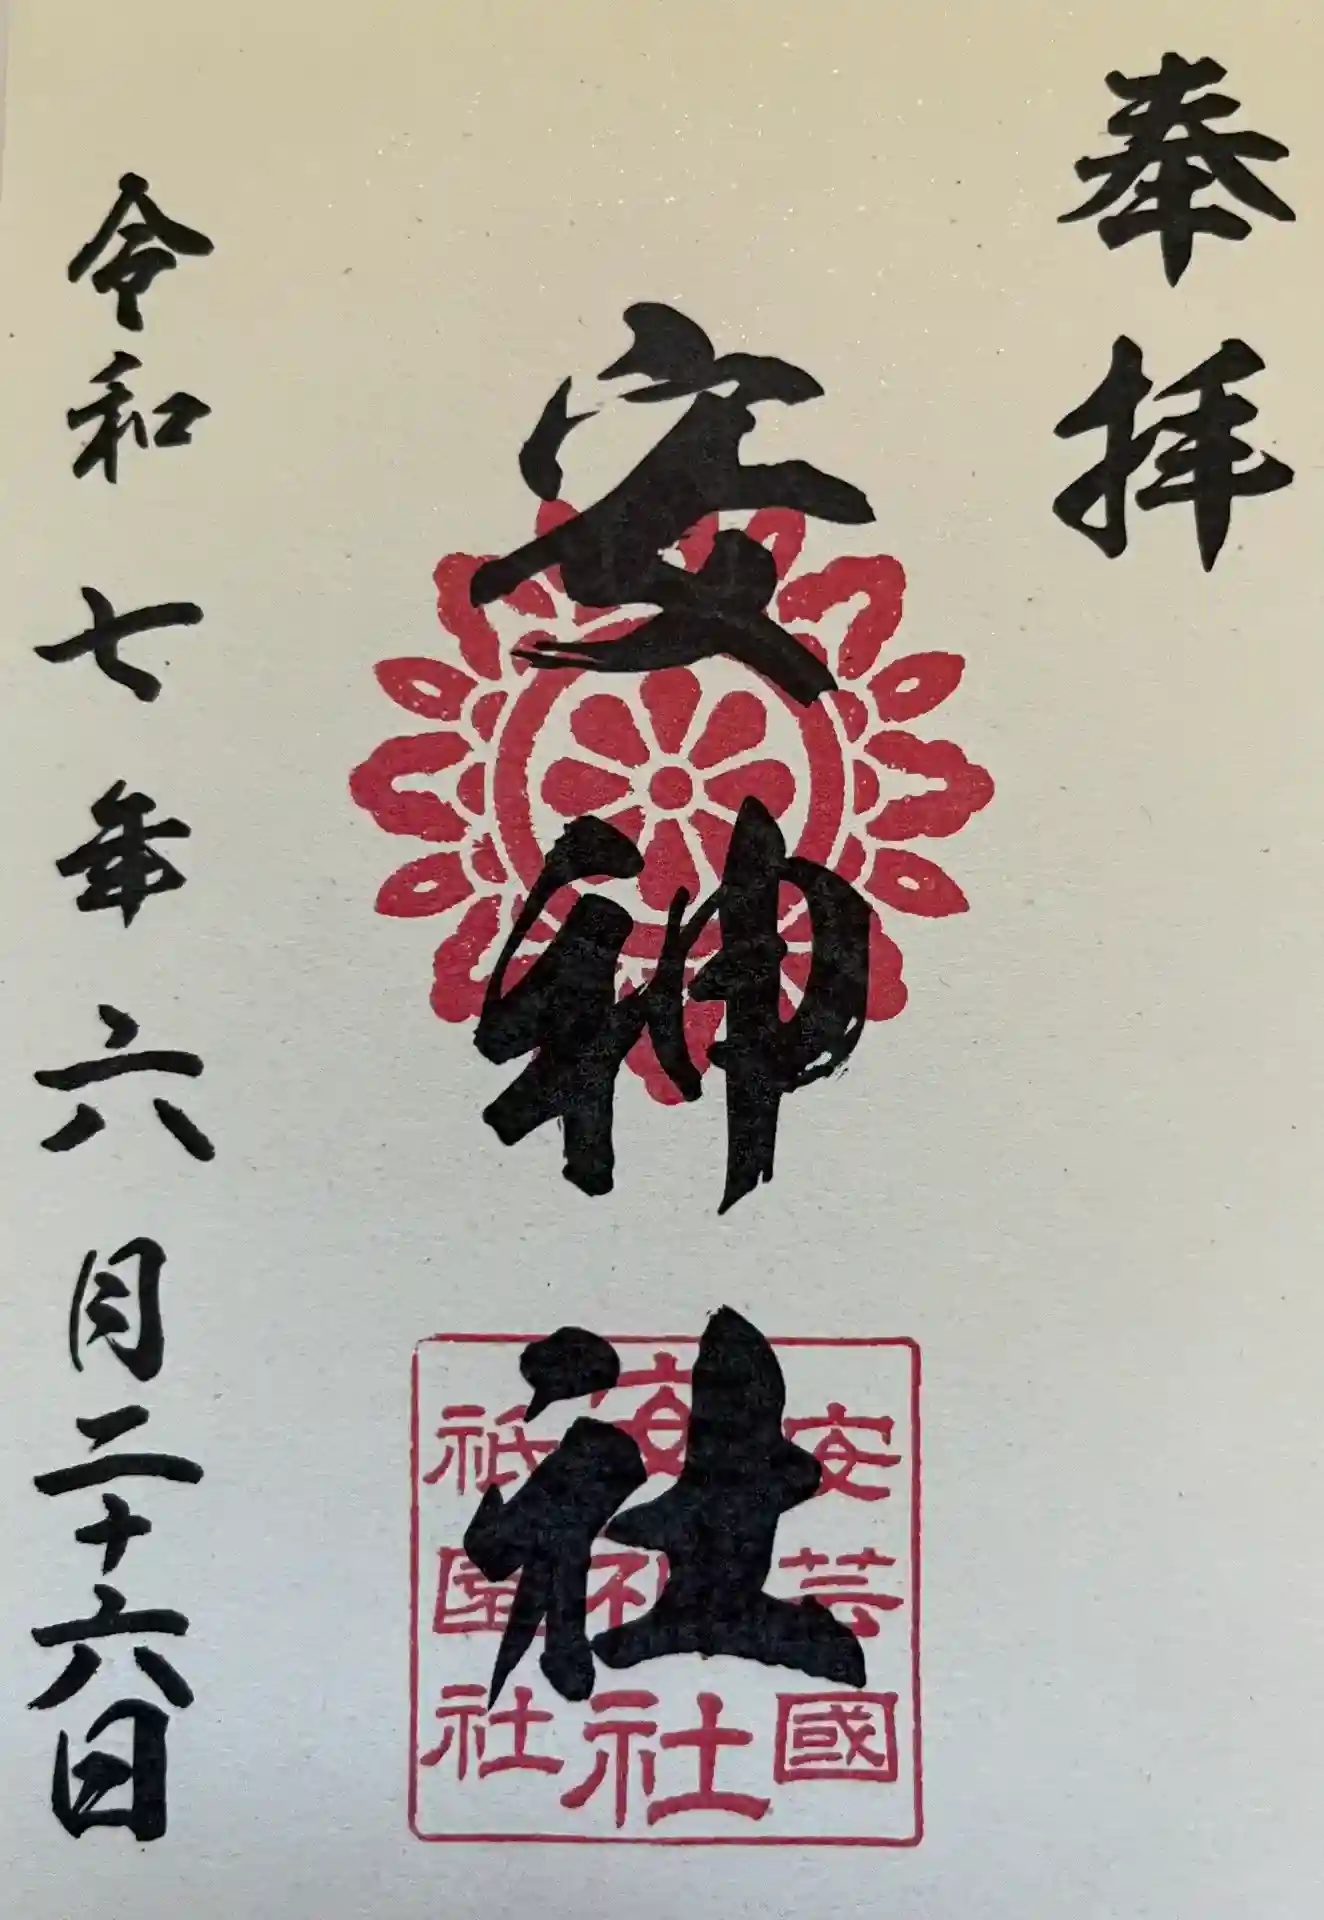 奉拝
安神社
安芸國
安神社
祇園社
令和七年六月二十六日